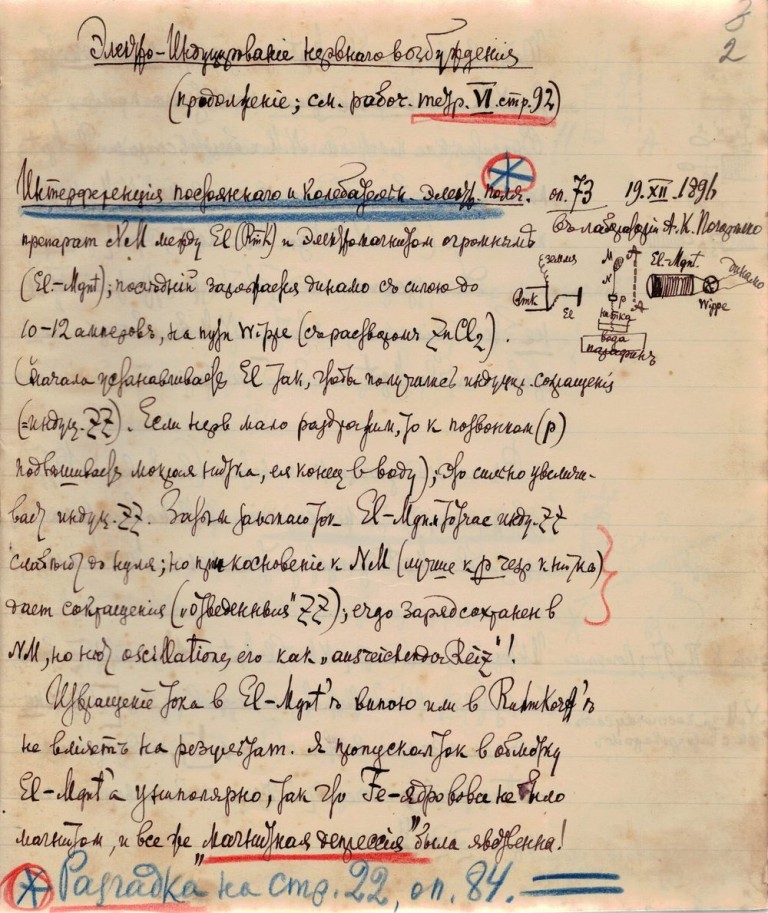 3
2
Электро-Индуцированіе нервнаго возбужденія
(продолженіе; см. рабоч. тетр. VI. стр. 92)
Интерференція постояннаго и колебательн. электр. поля. оп. 73 19.XII.1896
В лабораторіи А. К. Погорѣлко
препарат NM между El (Rmk) и электромагнитом огромнымъ
(El-Mgnt); послѣдній заряжается динамо съ силою до
10-12 амперовъ, на пути Wippe (съ раствором ZnCl2).
земля
Rmk
El
M
N
p
A
A
нитка
вода
парафинъ
El-Mgnt.
Wippe
динамо
Сначала устанавливаетъ El так, чтобы получились индукц. сокращенія
(=индукц. ZZ). Если нерв мало раздражим, то к позвонкам (p)
подвѣшивается мокрая нитка, ея конец в воду); это сильно увеличи-
вает индукц. ZZ. Затѣм замыкаю ток El-Mgnt тотчас индукц. ZZ
слабѣют до нуля; но прикосновеніе к NM (лучше к p чрез к нитка)
дает сокращенія ("отведенныя" ZZ); зарядсохранен в
NM, но нѣт oscillatione, его как "ausreichender Reiz"!
Извращеніе тока в El-Mgnt'ѣ виною или в Ruhmkorff'ѣ
не вліяетъ на результат. Я пропускал ток в обмотку
El-Mgnt'а униполярно, так что Fe-ядро вовсе не было
магнитом, и все же "магнитная депрессія" была явственна!
Разгадка на стр. 22, оп. 84.